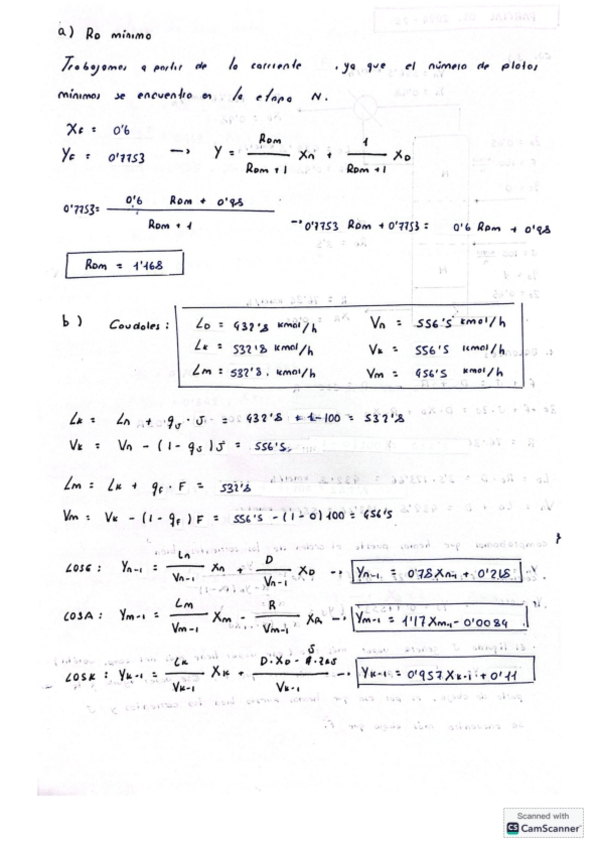 a) Ro mínimo
Trabajamos a partir de la corriente , ya que el número de platos
mínimos se encuentra en la etapa N.
XF = 0'6
YF = 0'7753 → Y = RDm / RDm + 1 Xn + 1 / RDm + 1 XD
0'7753 = 0'6 RDm + 0'98 / RDm + 1 → 0'7753 RDm + 0'7753 = 0'6 RDm + 0'98
RDm = 1'168
b) Caudales : LD = 432'8 kmol/h Vn = 556'5 kmol/h
Lk = 532'8 kmol/h Vk = 556'5 kmol/h
Lm = 532'8 . kmol/h Vm = 456'5 kmol/h
Lk = Ln + qJ · J = 432'8 + 1·100 = 532'8
Vk = Vn - (1 - qJ) J = 556'5
Lm = Lk + qF · F = 532'8
Vm = Vk - (1 - qF) F = 556'5 - (1 - 0) 100 = 456'5
LOSE : Yn-1 = Ln / Vn-1 Xn + D / Vn-1 XD → Yn-1 = 0'78 Xn-1 + 0'218
LOSA : Ym-1 = Lm / Vm-1 Xm - R / Vm-1 XR → Ym-1 = 1'17 Xm-1 - 0'0084
LOSK : Yk-1 = Lk / Vk-1 Xk + / Vk-1 → Yk-1 = 0'957 Xk-1 + 0'11
Scanned with
CS CamScanner